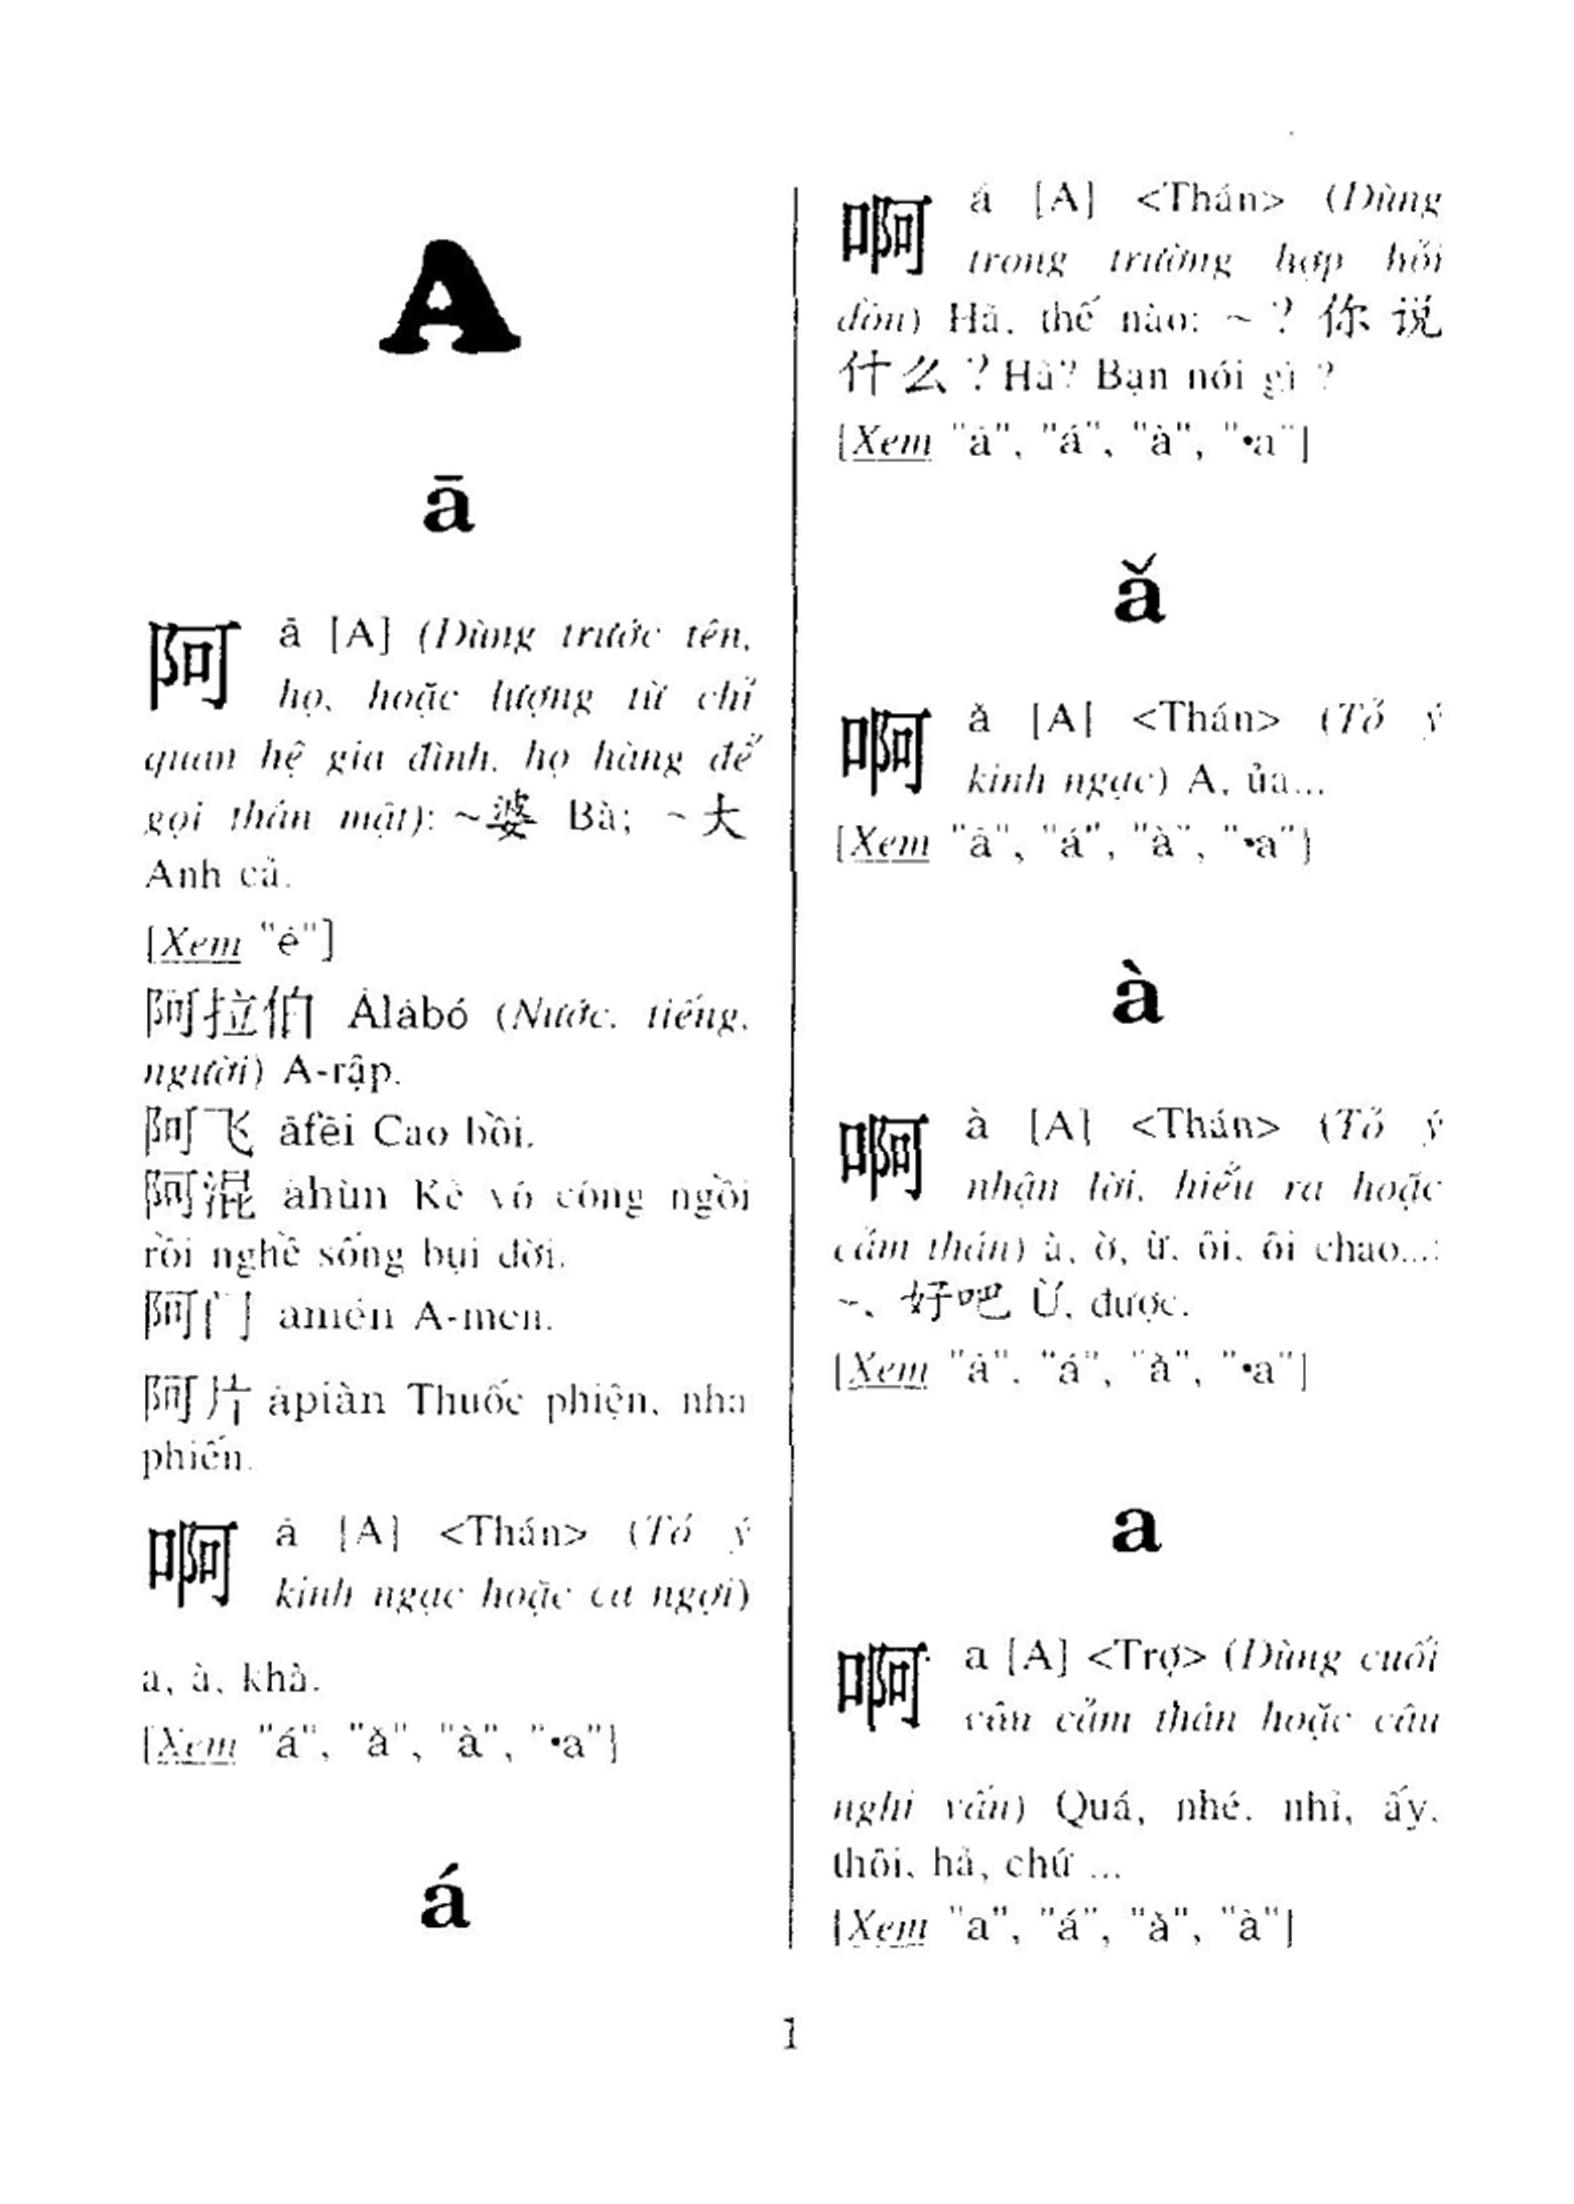 A
ā
阿 ā [A] (Dùng trước tên,
họ, hoặc lượng từ chỉ
quan hệ gia đình, họ hàng để
gọi thân mật): ~婆 Bà; ~大
Anh cả.
[Xem "ē"]
阿拉伯 Ālābó (Nước, tiếng,
người) A-rập.
阿飞 āfēi Cao bồi.
阿混 āhùn Kẻ vô công ngồi
rồi nghề sống bụi đời.
阿门 āmén A-men.
阿片 āpiàn Thuốc phiện, nha
phiến.
啊 ā [A] <Thán> (Tỏ ý
kinh ngạc hoặc ca ngợi)
a, à, khà.
[Xem "á", "ǎ", "à", "•a"]
á
啊 á [A] <Thán> (Dùng
trong trường hợp hỏi
dồn) Hả, thế nào: ~? 你说
什么? Hả? Bạn nói gì ?
[Xem "ā", "á", "à", "•a"]
ǎ
啊 ǎ [A] <Thán> (Tỏ ý
kinh ngạc) A, ủa...
[Xem "ā", "á", "à", "•a"]
à
啊 à [A] <Thán> (Tỏ ý
nhận lời, hiểu ra hoặc
cảm thán) à, ờ, ừ, ôi, ôi chao...:
~、好吧 Ừ, được.
[Xem "ā", "á", "ǎ", "•a"]
a
啊 a [A] <Trợ> (Dùng cuối
câu cảm thán hoặc câu
nghi vấn) Quá, nhé, nhỉ, ấy,
thôi, hả, chứ ...
[Xem "a", "á", "ǎ", "à"]
1